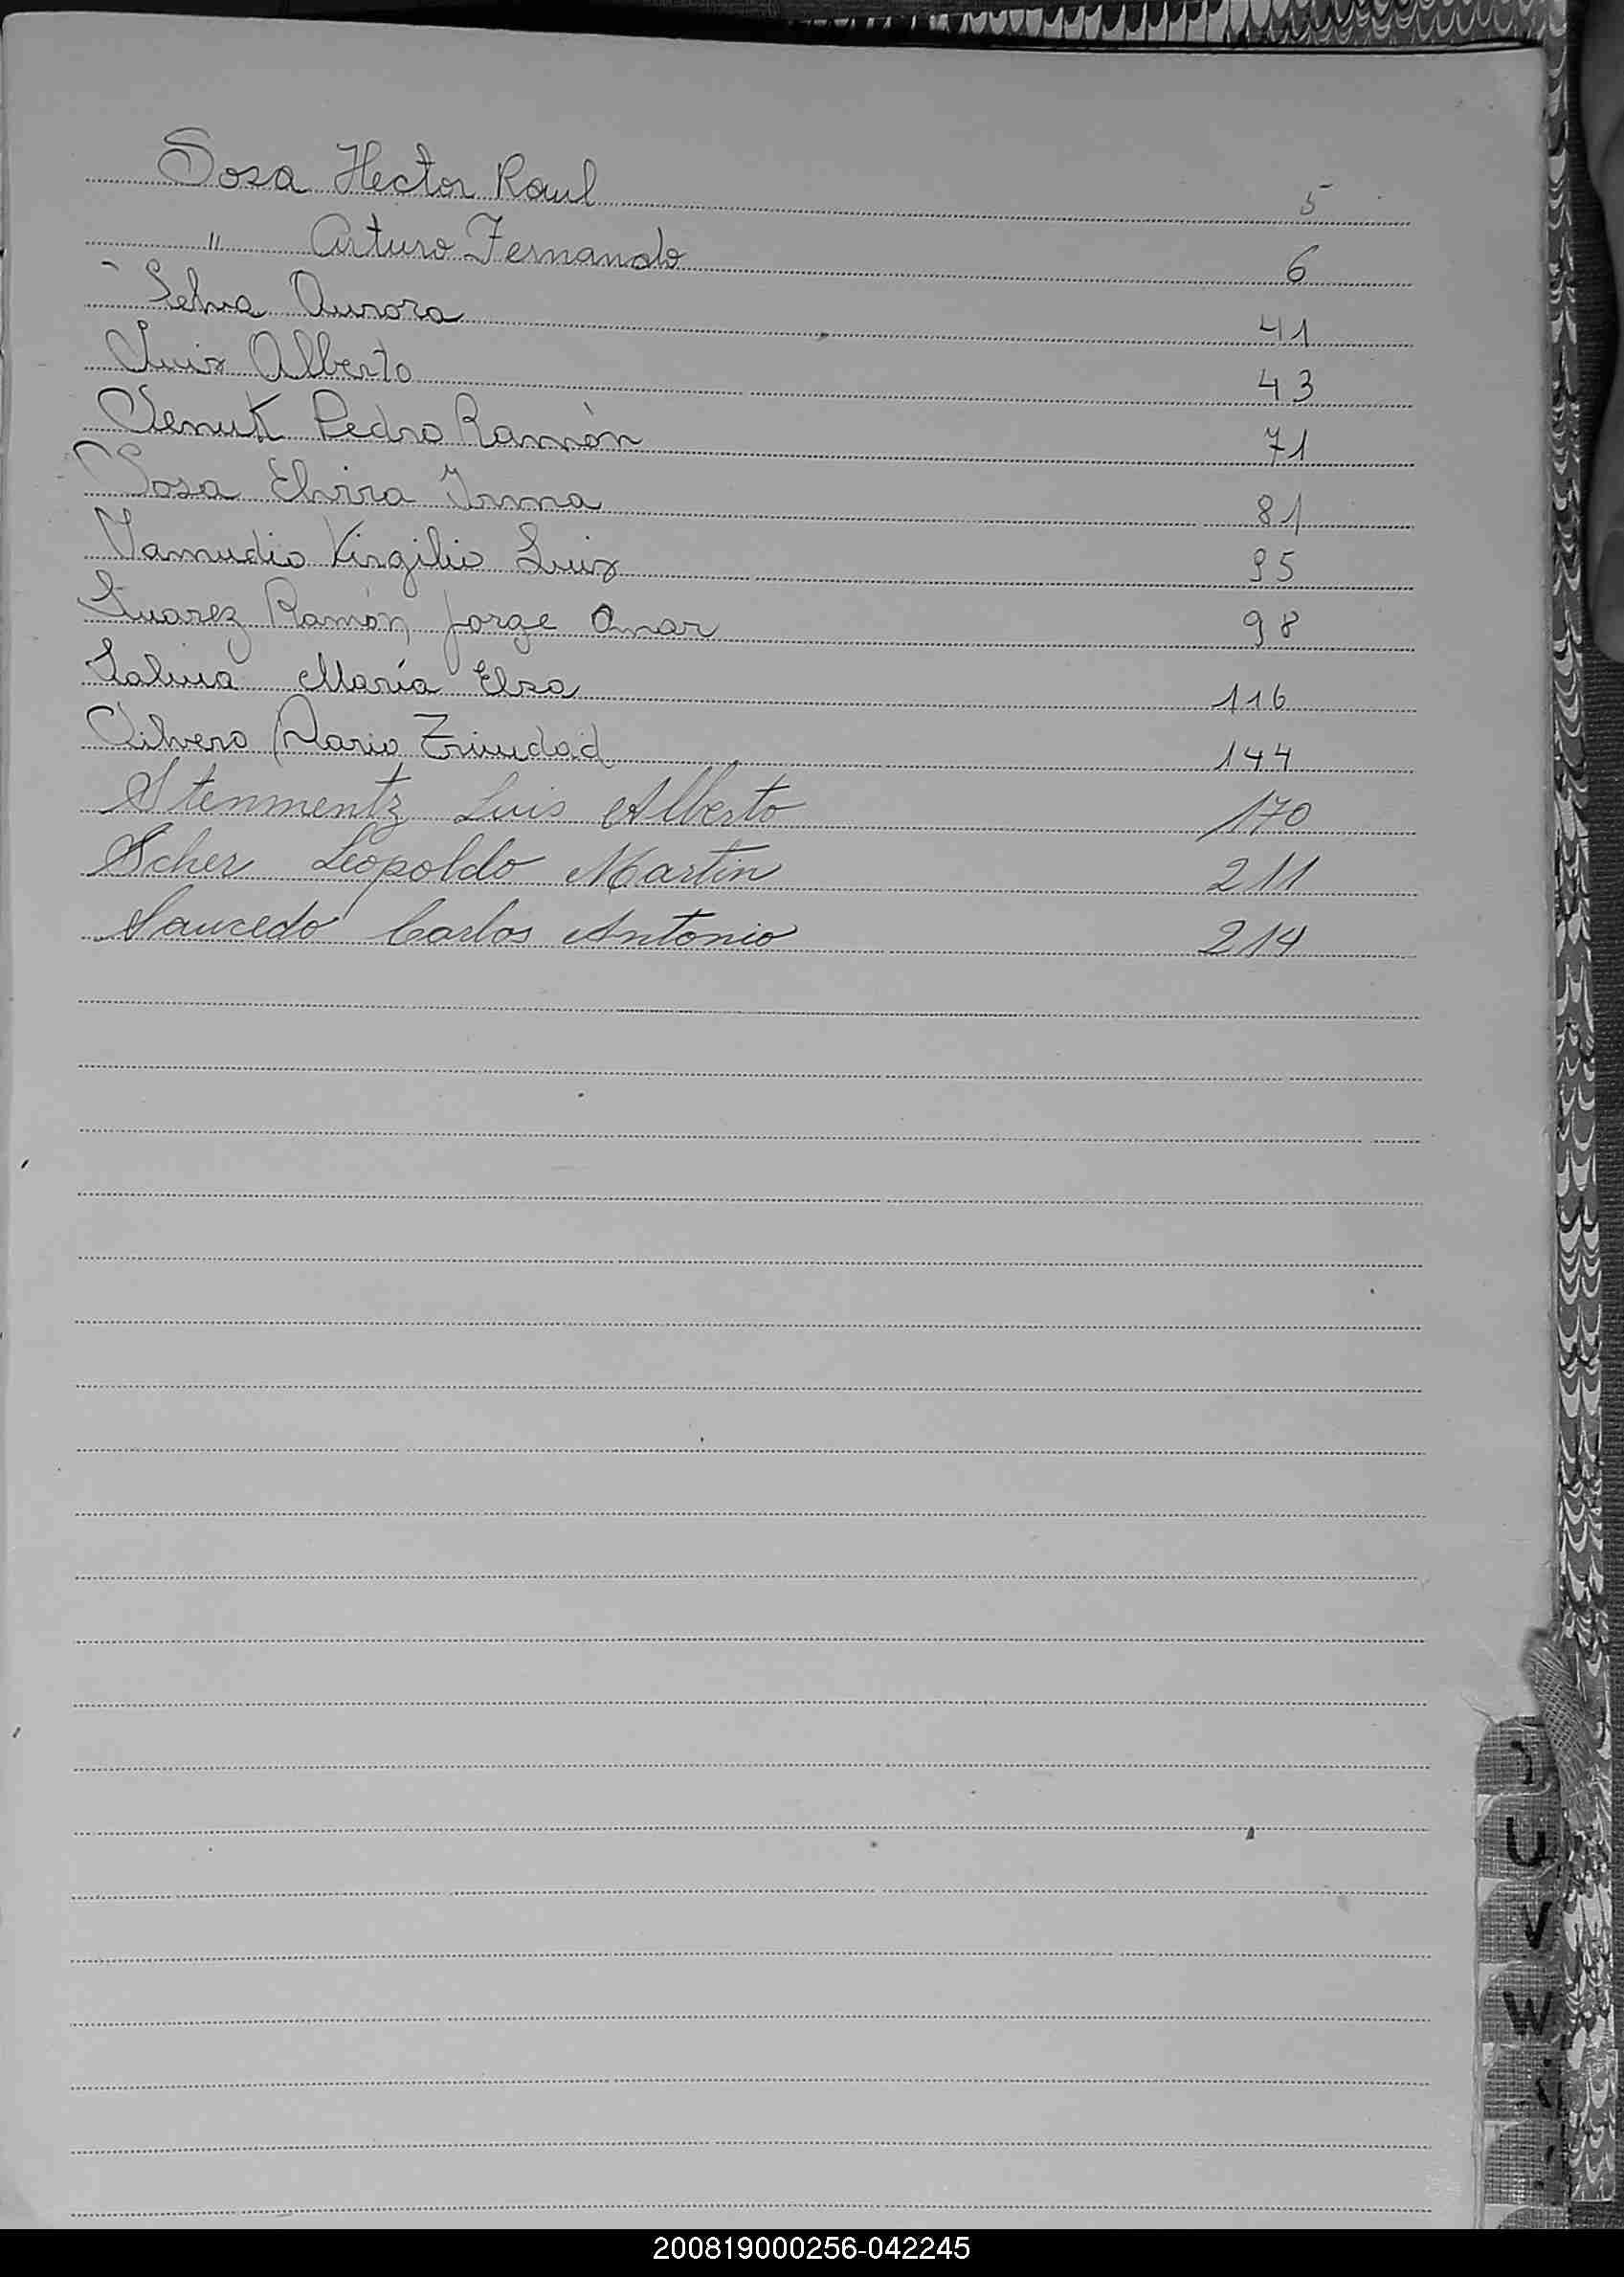 Sosa Hector Raul 5
" Arturo Fernando 6
Selva Aurora 41
Luis Alberto 43
Pedro Ramón 71
Sosa Elvira Irma 81
Samudio Virgilio Luis 95
Suarez Ramón Jorge Omar 98
Salina María Elsa 116
Silvero Mario Trinidad 144
Stenmentz Luis Alberto 170
Scher Leopoldo Martin 211
Saucedo Carlos Antonio 214
U
V
W
200819000256-042245